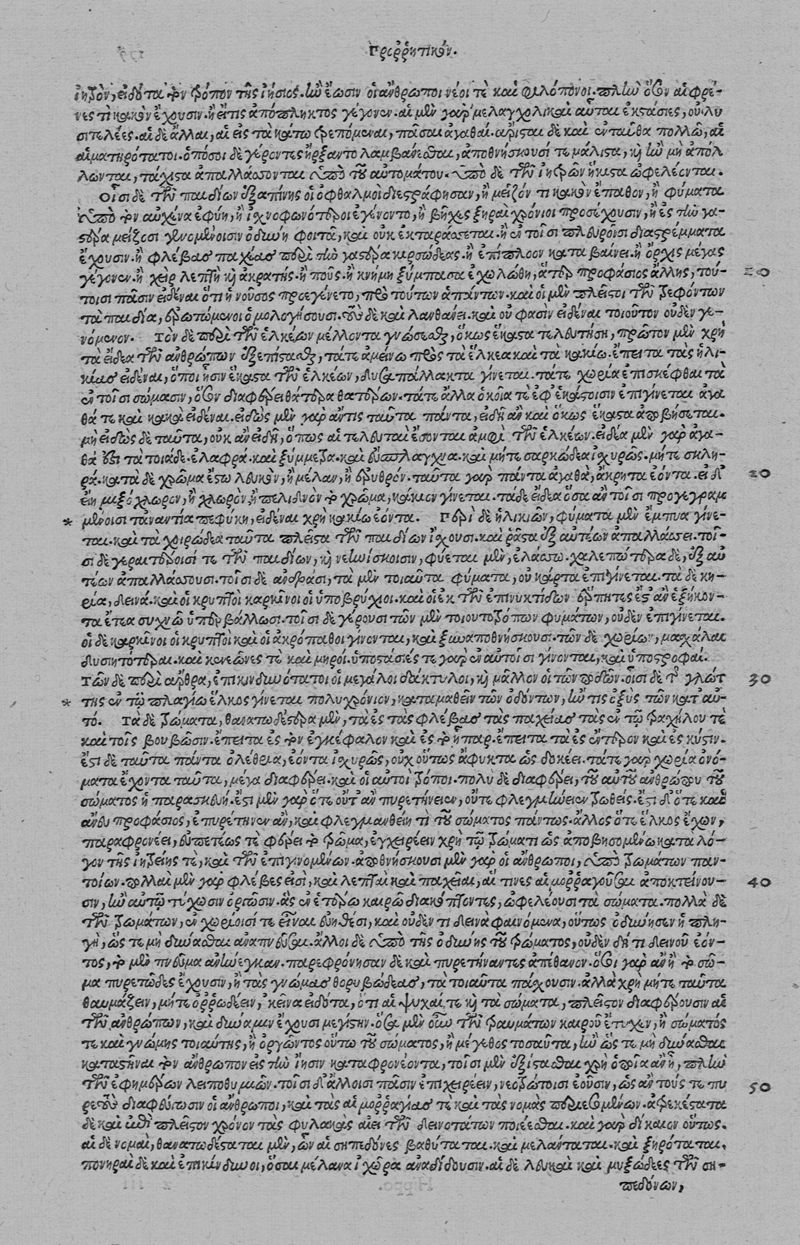 Προρρητικόν.
ἰητὸν, εἰδότα τὸν τρόπον τῆς ἰήσιος. ἢν ἔωσιν οἱ ἄνθρωποι νέοι τε καὶ φιλόπονοι. πλὴν ὅσον αἱ φρέ-
νες τι κακὸν ἔχουσιν. ἢ εἴ τις ἀπόπληκτος γέγονεν. αἱ μὲν γὰρ μελαγχολικαὶ αὗται ἐκστάσιες, οὐ λυ
σιτελέες. αἱ δὲ ἄλλαι, αἱ εἰς τὰ κάτω τρεπόμεναι, πᾶσαι ἀγαθαί. ἄρισται δὲ καὶ ἐνταῦθα πολλῷ, αἱ
αἱματηρόταται. ὁπόσοι δὲ γέροντες ἤρξαντο λαμβάνεσθαι, ἀποθνήσκουσί τε μάλιστα, καὶ ἢν μὴ ἀπόλ
λωνται, τάχιστα ἀπαλλάσσονται ὑπὸ τοῦ αὐτομάτου. ὑπὸ δὲ τῶν ἰητρῶν ἥκιστα ὠφελέονται.
Οἷσι δὲ τῶν παιδίων ἐξαπίνης οἱ ὀφθαλμοὶ διεστράφησαν, ἢ μεῖζόν τι κακὸν ἔπαθον, ἢ φύματα
ὑπὸ τὸν αὐχένα ἐφύη, ἢ ἰχνοφωνότεροι ἐγένοντο, ἢ βῆχες ξηραὶ χρόνιοι προσέχουσιν, ἢ ἐς τὴν γα-
στέρα μείζοσι γινομένοισιν ὀδύνη φοιτᾷ, καὶ οὐκ ἐκταράσσεται. ἢ ἐν τοῖσι πλευροῖσι διαστρέμματα
ἔχουσιν. ἢ φλέβας παχείας περὶ τὴν γαστέρα κιρσώδεας. ἢ ἐπίπλοον καταβαίνει. ἢ ὄρχις μέγας
γέγονεν. ἢ χεὶρ λεπτὴ καὶ ἀκρατής. ἢ ποὺς. ἢ κνήμη ξύμπασα ἐχωλώθη, ἄτερ προφάσιος ἄλλης, τού-
τοισι πᾶσιν εἰδέναι ὅτι ἡ νοῦσος προεγένετο, πρὸ τούτων ἁπάντων. καὶ οἱ μὲν πλεῖστοι τῶν τρεφόντων
τὰ παιδία, ἐρωτώμενοι ὁμολογήσουσι. τοὺς δὲ καὶ λανθάνει. καὶ οὔ φασιν εἰδέναι τοιοῦτον οὐδὲν γε-
νόμενον. Τὸν δὲ περὶ τῶν ἑλκέων μέλλοντα γνώσεσθαι, ὅκως ἕκαστα τελευτήσῃ, πρῶτον μὲν χρὴ
τὰ εἴδεα τῶν ἀνθρώπων ἐξεπίστασθαι, τά τε ἀμείνω πρὸς τὰ ἕλκεα καὶ τὰ κακίω. ἔπειτα τὰς ἡλι-
κίας εἰδέναι, ὁποίῃσιν ἕκαστα τῶν ἑλκέων, δυσαπάλλακτα γίνεται. τά τε χωρία ἐπισκέφθαι τὰ
ἐν τοῖσι σώμασιν, ὅσον διαφέρει θάτερα θατέρων. τά τε ἄλλα ὁκοῖα τε ἐφ' ἑκάστοισιν ἐπιγίνεται ἀγα
θά τε καὶ κακὰ εἰδέναι. εἰδὼς μὲν γὰρ ἄν τις ταῦτα πάντα, εἰδείη ἂν καὶ ὅκως ἕκαστα ἀποβήσεται.
μὴ εἰδὼς δὲ ταῦτα, οὐκ ἂν εἰδείη, ὅπως αἱ τελευταὶ ἔσονται ἀμφὶ τῶν ἑλκέων. εἴδεα μὲν γὰρ ἀγα-
θά ἐστι τὰ τοιάδε. ἐλαφρὰ. καὶ ξύμμετρα. καὶ εὔσπλαγχνα. καὶ μήτε σαρκώδεα ἰσχυρῶς. μήτε σκλη-
ρά. κατὰ δὲ χρῶμα ἔστω λευκὸν, ἢ μέλαν, ἢ ἐρυθρόν. ταῦτα γὰρ πάντα ἀγαθὰ, ἄκρητα ἐόντα. εἰ δ'
εἴη μιξόχλωρον, ἢ χλωρὸν, ἢ πελιδνὸν τὸ χρῶμα, κάκιον γίνεται. τὰ δὲ εἴδεα ὅσα ἂν τοῖσι προγεγραμ
μένοισι τἀναντία πεφύκῃ, εἰδέναι χρὴ κακίω ἐόντα. Περὶ δὲ ἡλικιῶν, φύματα μὲν ἔμπυα γίνε-
ται. καὶ τὰ χοιρώδεα ταῦτα πλεῖστα τῶν παιδίων ἴσχουσι. καὶ ῥᾷστα ἐξ αὐτέων ἀπαλλάσσει. τοῖ-
σι δὲ γεραιτέροισί τε τῶν παιδίων, καὶ νεηνίσκοισιν, φύεται μὲν, ἐλάσσω. χαλεπώτερα δὲ, ἐξ αὐ
τέων ἀπαλλάσσουσι. τοῖσι δὲ ἀνδράσι, τὰ μὲν τοιαῦτα φύματα, οὐ κάρτα ἐπιγίνεται. τὰ δὲ κη-
ρία, δεινά. καὶ οἱ κρυπτοὶ καρκίνοι οἱ ὑποβρύχιοι. καὶ οἱ ἐκ τῶν ἐπινυκτίδων ἕρπητες ἔς τ' ἂν ἑξήκον-
τα ἔτεα συχνῷ ὑπερβάλλωσι. τοῖσι δὲ γέρουσι τῶν μὲν τοιουτοτρόπων φυμάτων, οὐδὲν ἐπιγίνεται.
οἱ δὲ καρκῖνοι οἱ κρυπτοὶ καὶ οἱ ἀκρόπαθοι γίνονται, καὶ ξυναποθνήσκουσι. τῶν δὲ χωρίων, μασχάλαι
δυσιητότεραι. καὶ κενεῶνές τε καὶ μηροί. ὑποστάσιές τε γὰρ ἐν αὐτοῖσι γίνονται, καὶ ὑποστροφαί.
Τῶν δὲ περὶ ἄρθρα, ἐπικινδυνότατοι οἱ μεγάλοι δάκτυλοι, καὶ μᾶλλον οἱ τῶν ποδῶν. οἷσι δὲ τῆς γλώτ
της ἐν τῷ πλαγίῳ ἕλκος γίνεται πολυχρόνιον, καταμαθεῖν τῶν ὀδόντων, ἤν τις ὀξὺς τῶν κατ' αὐ-
τό. Τὰ δὲ τρώματα, θανατωδέστερα μὲν, τὰ ἐς τὰς φλέβας τὰς παχείας τὰς ἐν τῷ τραχήλῳ τε
καὶ τοῖς βουβῶσιν. ἔπειτα ἐς τὸν ἐγκέφαλον καὶ ἐς τὸ ἧπαρ. ἔπειτα τὰ ἐς ἔντερον καὶ ἐς κύστιν.
ἐστὶ δὲ ταῦτα πάντα ὀλέθρια, ἐόντα ἰσχυρῶς, οὐχ οὕτως ἄφυκτα ὡς δοκέει. τά τε γὰρ χωρία ὀνό-
ματα ἔχοντα ταῦτα, μέγα διαφέρει. καὶ οἱ αὐτοὶ τρόποι. πολὺ δὲ διαφέρει, τοῦ αὐτοῦ ἀνθρώπου τοῦ
σώματος ἡ παρασκευή. ἔστι μὲν γὰρ ὅτε οὔτ' ἂν πυρετήνειεν, οὔτε φλεγμήνειεν τρωθείς. ἔστι δ' ὅτε καὶ
ἄνευ προφάσιος, ἐπυρέτηνεν ἂν, καὶ φλεγμανθείη τι τοῦ σώματος πάντως. ἄλλος ὅτε ἕλκος ἔχων,
παραφρονέει, εὐπετέως τε φέρει τὸ τρῶμα, ἐγχειρέειν χρὴ τῷ τρώματι ὡς ἀποβησομένῳ κατὰ λό-
γον τῆς ἰητρείης τε, καὶ τῶν ἐπιγινομένων. ἀποθνήσκουσι μὲν γὰρ οἱ ἄνθρωποι, ὑπὸ τρωμάτων παν-
τοίων. πολλαὶ μὲν γὰρ φλέβες εἰσὶ, καὶ λεπταὶ καὶ παχεῖαι, αἵ τινες αἱμορραγοῦσαι ἀποκτείνου-
σιν, ἢν αὐτῷ τύχωσιν ὀργῶσιν. ἃς ἐν ἑτέρῳ καιρῷ διακόπτοντες, ὠφελέουσι τὰ σώματα. πολλὰ δὲ
τῶν τρωμάτων, ἐν χωρίοισί τε εἶναι εὐήθεσι, καὶ οὐδέν τι δεινὰ φαινόμενα, οὕτως ὠδύνησεν ἡ πλη-
γὴ, ὥς τε μὴ δύνασθαι ἀναπνεῦσαι. ἄλλοι δὲ ὑπὸ τῆς ὀδύνης τοῦ τρώματος, οὐδὲν δή τι δεινοῦ ἐόν-
τος, τὸ μὲν πνεῦμα ἀνήνεγκαν. παρεφρόνησαν δὲ καὶ πυρετήναντες ἀπέθανον. ὅσοι γὰρ ἂν ἢ τὸ σῶ-
μα πυρετῶδες ἔχουσιν, ἢ τὰς γνώμας θορυβώδεας, τὰ τοιαῦτα πάσχουσιν. ἀλλὰ χρὴ μήτε ταῦτα
θαυμάζειν, μήτε ὀρρωδέειν, κεῖνα εἰδότα, ὅτι αἱ ψυχαί τε καὶ τὰ σώματα, πλεῖστον διαφέρουσιν αἱ
τῶν ἀνθρώπων, καὶ δύναμιν ἔχουσι μεγίστην. ὅσα μὲν οὖν τῶν τρωμάτων καιροῦ ἔτυχεν, ἢ σώματός
τε καὶ γνώμης τοιαύτης, ἢ ὀργῶντος οὕτω τοῦ σώματος, ἢ μέγεθος τοσαῦτα, ἢν ὥς τε μὴ δύνασθαι
καταστῆναι τὸν ἄνθρωπον εἰς τὴν ἴησιν καταφρονέοντα, τοῖσι μὲν ἐξίστασθαι χρὴ ὁποῖα ἂν ᾖ, πλὴν
τῶν ἐφημέρων λειποθυμιῶν. τοῖσι δ' ἄλλοισι πᾶσιν ἐπιχειρέειν, νεοτρώτοισι ἐοῦσιν, ὡς ἂν τούς τε πυ
ρετοὺς διαφεύγωσιν οἱ ἄνθρωποι, καὶ τὰς αἱμορραγίας τε καὶ τὰς νομάς ἀφεκέσται
δὲ καὶ ἐπὶ πλεῖστον χρόνον τὰς φυλακὰς αἰεὶ τῶν δεινοτάτων ποιέεσθαι. καὶ γὰρ δίκαιον οὕτως.
αἱ δὲ νομαὶ, θανατωδέσταται μὲν, ὧν αἱ σηπεδόνες βαθύταται. καὶ μελάνταται. καὶ ξηρόταται.
πονηραὶ δὲ καὶ ἐπικίνδυνοι, ὅσαι μέλανα ἰχῶρα ἀναδίδουσιν. αἱ δὲ λευκαὶ καὶ μυξώδεες τῶν ση-
πεδόνων,
10
20
30
40
50